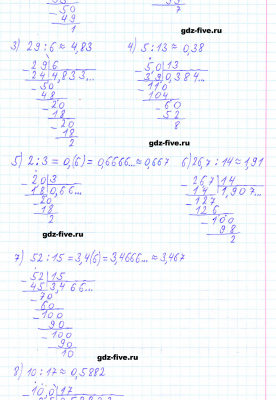 50
49
1
33
7
gdz-five.ru
3) 29 : 6 ≈ 4,83
4) 5 : 13 ≈ 0,38
29 | 6
24 | 4,833...
50
48
20
18
20
18
2
5,0 | 13
39 | 0,384...
110
104
60
52
8
gdz-five.ru
5) 2 : 3 = 0,(6) = 0,6666... ≈ 0,667
6) 26,7 : 14 ≈ 1,91
20 | 3
18 | 0,66...
20
18
2
267 | 14
14 | 1,907...
127
126
100
98
2
gdz-five.ru
7) 52 : 15 = 3,4(6) = 3,4666... ≈ 3,467
52 | 15
45 | 3,466...
70
60
100
90
100
90
10
gdz-five.ru
8) 10 : 17 ≈ 0,5882
10,0 | 17